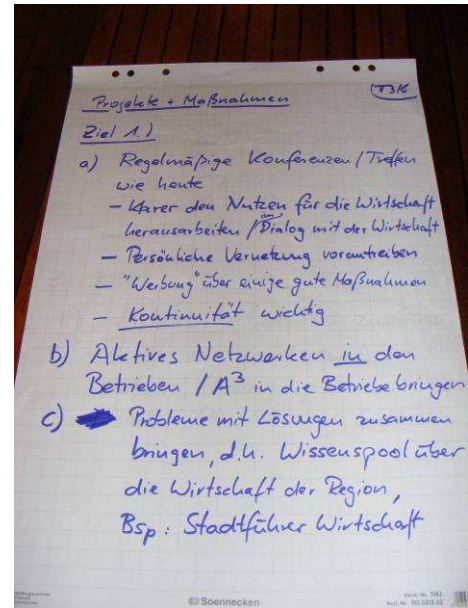 Projekte + Maßnahmen
T3/6
Ziel 1.)
a) Regelmäßige Konferenzen / Treffen
wie heute
- klarer den Nutzen für die Wirtschaft
herausarbeiten / im Dialog mit der Wirtschaft
- Persönliche Vernetzung vorantreiben
- "Werbung" über einige gute Maßnahmen
- Kontinuität wichtig
b) Aktives Netzwerken in den
Betrieben / A³ in die Betriebe bringen
c) Probleme mit Lösungen zusammen
bringen, d.h. Wissenspool über
die Wirtschaft der Region,
Bsp: Stadtführer Wirtschaft
Soennecken